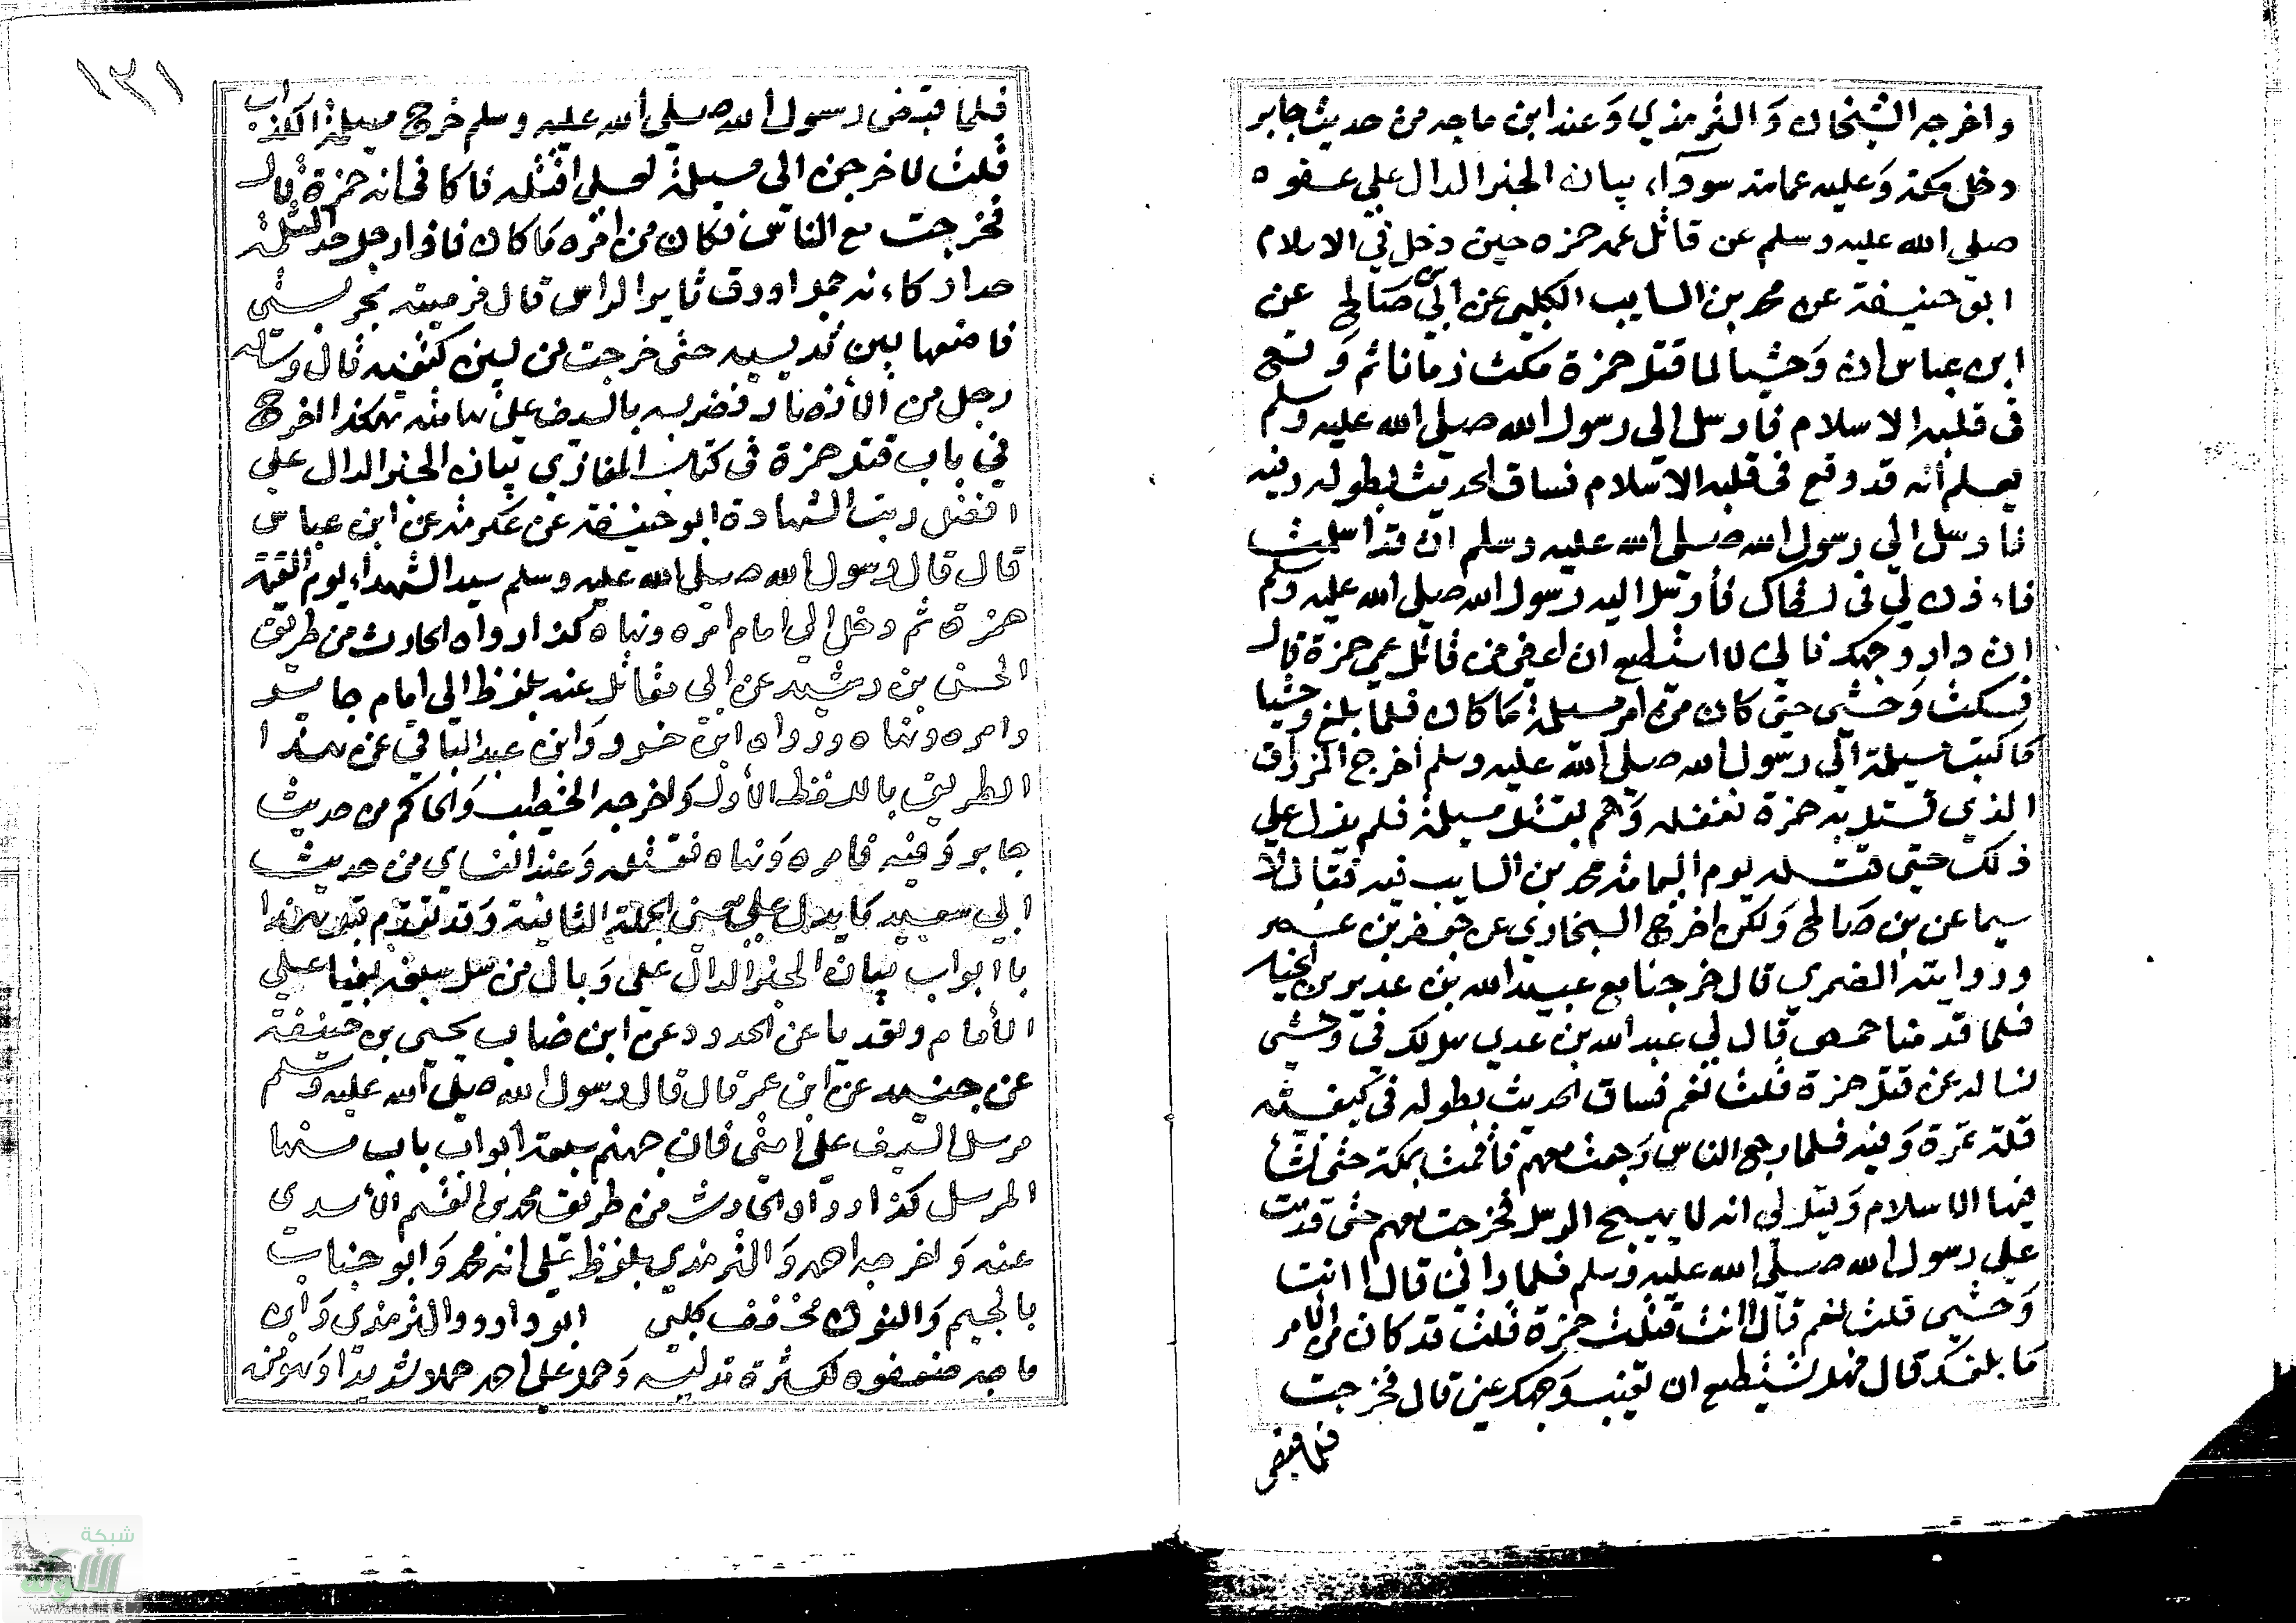 واخرجه الشيخان والترمذي وعند ابن ماجه من حديث جابر
دخل مكة وعليه عمامة سوداء بيان الخبر الدال علي عفوه
صلي الله عليه وسلم عن قاتل عمه حمزه حين دخل في الاسلام
ابو حنيفة عن محمد بن السايب الكلبي عن ابي صالح عن
ابن عباس ان وحشيا لما قتل حمزة مكث زمانا ثم وقع
في قلبه الاسلام فارسل الي رسول الله صلي الله عليه وسلم
يعلم انه قد وقع في قلبه الاسلام فساق الحديث بطوله وفيه
فارسل الي رسول الله صلي الله عليه وسلم ان قد اسلمت
فاءذن لي في لقاك فأرسل اليه رسول الله صلي الله عليه وسلم
ان وار وجهك فاني لا استطيع ان اعفي من قاتل عمي حمزة قال
فسكت وحشي حتي كان من امر مسيلمة ما كان فلما بلغ وحشيا
ما كتب مسيلمة الي رسول الله صلي الله عليه وسلم اخرج المزراق
الذي قتل به حمزة وهم بقتل مسيلمة فلم يزل علي
ذلك حتي قتله يوم اليمامة محمد بن السايب فيه فقال لا
سيما عن بن صالح ولكن اخرج البخاري عن جعفر بن عمرو
ورواية الضمري قال خرجنا مع عبيد الله بن عدي بن الخيار
فلما قدمنا حمص قال لي عبد الله بن عدي هل لك في وحشي
نساله عن قتل حمزة قلت نعم فساق الحديث بطوله في كيفية
قتله وفيه فلما رجع الناس رجعت معهم فأقمت بمكة حتي فشا
فيها الاسلام وقيل لي انه لا يهيج الرسل فخرجت معهم حتي قدمت
علي رسول الله صلي الله عليه وسلم فلما راني قال اانت
وحشي قلت نعم قال اانت قتلت حمزة قلت قد كان من الامر
ما بلغك قال فهل تستطيع ان تغيب وجهك عني قال فخرجت
فلما قبض
١٣١
فلما قبض رسول الله صلي الله عليه وسلم خرج مسيلمة الكذاب
قلت لاخرجن الي مسيلمة لعلي اقتله فاكافي به حمزة قال
فخرجت مع الناس فكان من امره ما كان فاذا رجل
جدار كاءنه جمل اورق ثاير الراس قال فرميته بحربتي
فاضعها بين ثدييه حتي خرجت من بين كتفيه قال وثب اليه
رجل من الأنصار فضربه بالسيف علي هامته هكذا اخرج
في باب قتل حمزة في كتاب المغازي بيان الخبر الدال علي
افضل رتب الشهادة ابو حنيفة عن عكرمة عن ابن عباس
قال قال رسول الله صلي الله عليه وسلم سيد الشهداء يوم القيمة
حمزة ثم رجل دخل الي امام امره ونهاه كذا رواه الحارث من طريق
الحسن بن رشيد عن ابي مقاتل عنه بلفظ الي امام جاير
وامره ونهاه ورواه ابن خسرو وابن عبد الباقي عن هذا
الطريق باللفظ الأول واخرجه الخطيب والحاكم من حديث
جابر وفيه فامره ونهاه فقتله وعند النساي من حديث
ابي سعيد ما يدل علي معني الجملة الثانية وقد تقدم قبل هذا
بأبواب بيان الخبر الدال علي وبال من سل سيفه بغيا علي
الأمام وتعديا عن الحدود عن ابن ضاب يحيي بن حنيفة
عن جنيد عن ابن عمر قال قال رسول الله صلي الله عليه وسلم
من سل السيف علي امتي فان جهنم سبعة ابواب باب منها
لمن سل كذا رواه الحارث من طريق محمد بن القسم الأسدي
عنه واخرجه احمد والترمذي بلفظ علي امة محمد وابو جناب
بالجيم والنون مخفف كلبي ابو داود والترمذي وابن
ماجه ضعفوه لكثرة تدليسه وحمل علي احمد حملا شديدا وهو من